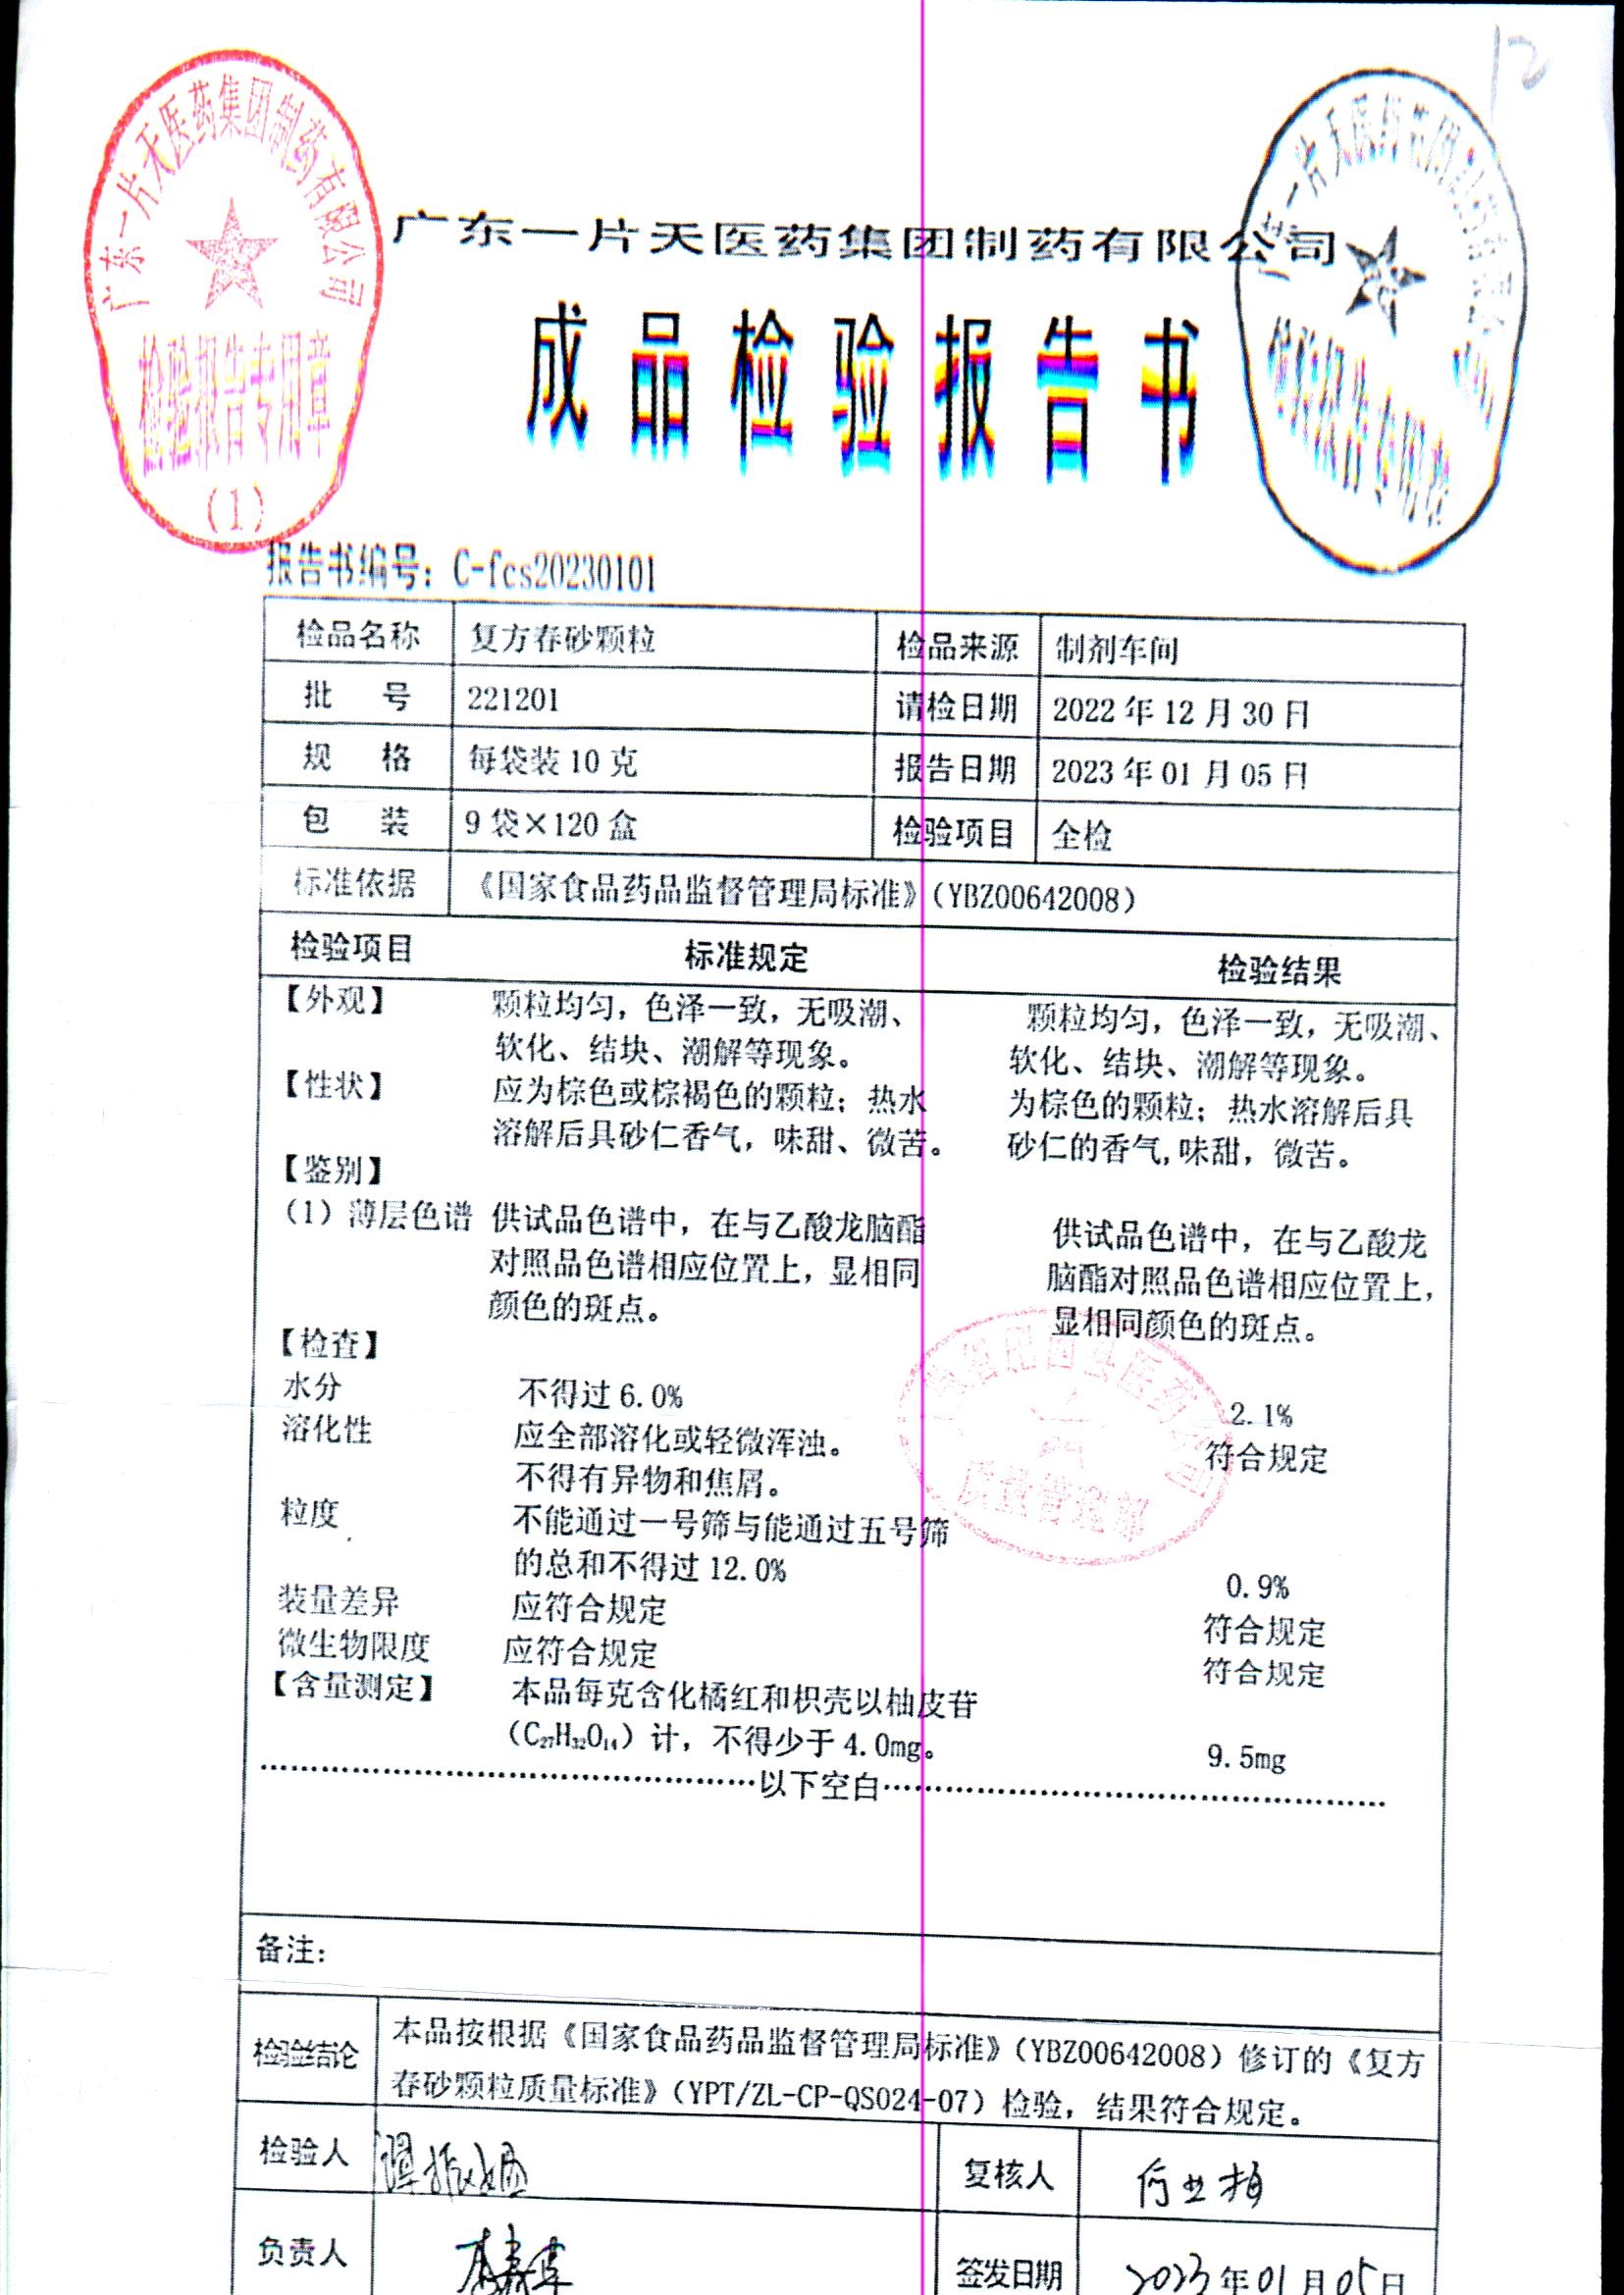 12
广东一片天医药集团制药有限公司
检验报告专用章
(1)
广东一片天医药集团制药有限公司
成品检验报告书
报告书编号：C-fcs20230101
检品名称 复方春砂颗粒 检品来源 制剂车间
批 号 221201 请检日期 2022年12月30日
规 格 每袋装10克 报告日期 2023年01月05日
包 装 9袋×120盒 检验项目 全检
标准依据 《国家食品药品监督管理局标准》（YBZ00642008）
检验项目 标准规定 检验结果
【外观】 颗粒均匀，色泽一致，无吸潮、 颗粒均匀，色泽一致，无吸潮、
软化、结块、潮解等现象。 软化、结块、潮解等现象。
【性状】 应为棕色或棕褐色的颗粒；热水 为棕色的颗粒；热水溶解后具
溶解后具砂仁香气，味甜、微苦。 砂仁的香气,味甜，微苦。
【鉴别】
（1）薄层色谱 供试品色谱中，在与乙酸龙脑酯 供试品色谱中，在与乙酸龙
对照品色谱相应位置上，显相同 脑酯对照品色谱相应位置上，
颜色的斑点。 显相同颜色的斑点。
【检查】
水分 不得过6.0% 2.1%
溶化性 应全部溶化或轻微浑浊。 符合规定
不得有异物和焦屑。
粒度 不能通过一号筛与能通过五号筛
的总和不得过12.0% 0.9%
装量差异 应符合规定 符合规定
微生物限度 应符合规定 符合规定
【含量测定】 本品每克含化橘红和枳壳以柚皮苷
（C₂₇H₃₂O₁₄）计，不得少于4.0mg。 9.5mg
以下空白
质量管理部
备注：
检验结论 本品按根据《国家食品药品监督管理局标准》（YBZ00642008）修订的《复方
春砂颗粒质量标准》（YPT/ZL-CP-QS024-07）检验，结果符合规定。
检验人 复核人
负责人 签发日期 2023年01月05日